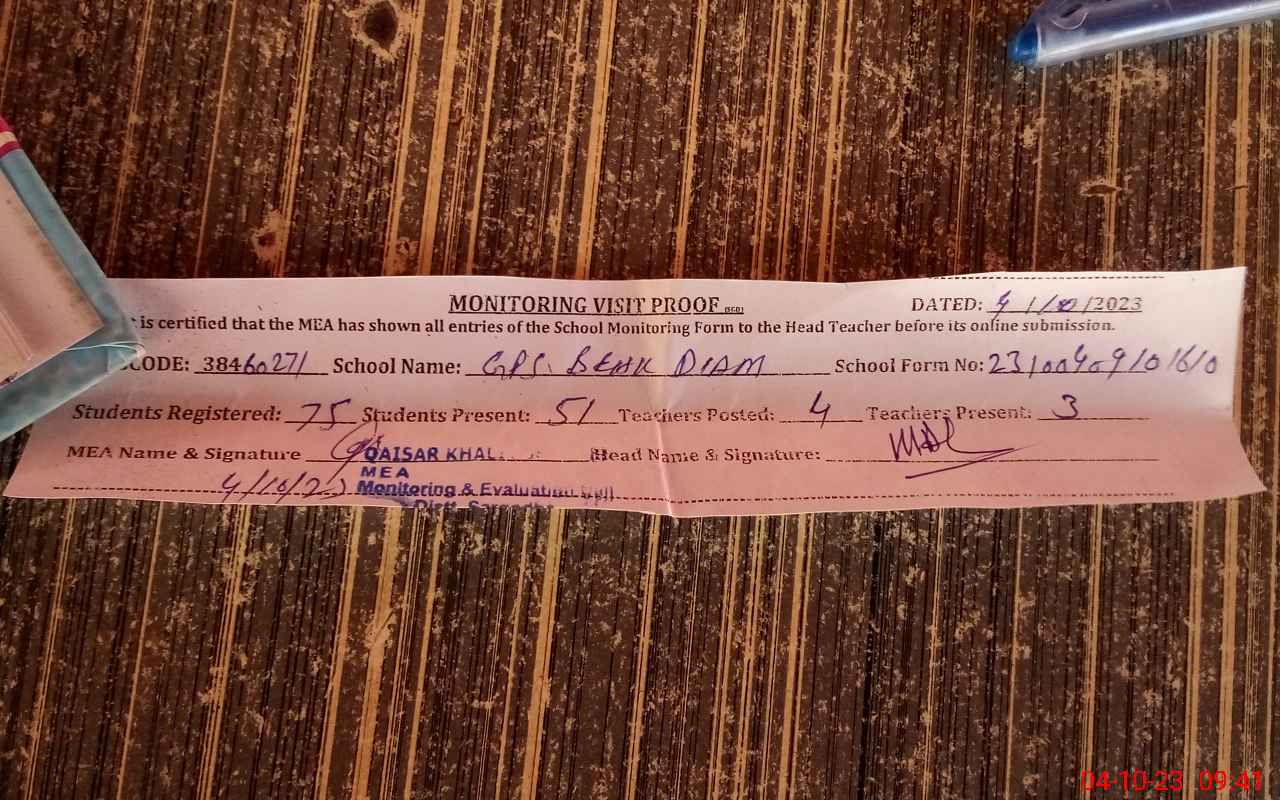 MONITORING VISIT PROOF (SGD) DATED: 4/10/2023
is certified that the MEA has shown all entries of the School Monitoring Form to the Head Teacher before its online submission.
CODE: 38460271 School Name: GPS. BEHK DIAM School Form No:
Students Registered: 75 Students Present: 51 Teachers Posted: 4 Teachers Present: 3
MEA Name & Signature QAISAR KHAL Head Name & Signature:
MEA
4/10/23 Monitoring & Evaluation Cell
Distt. Sargodha
04-10-23 09:41